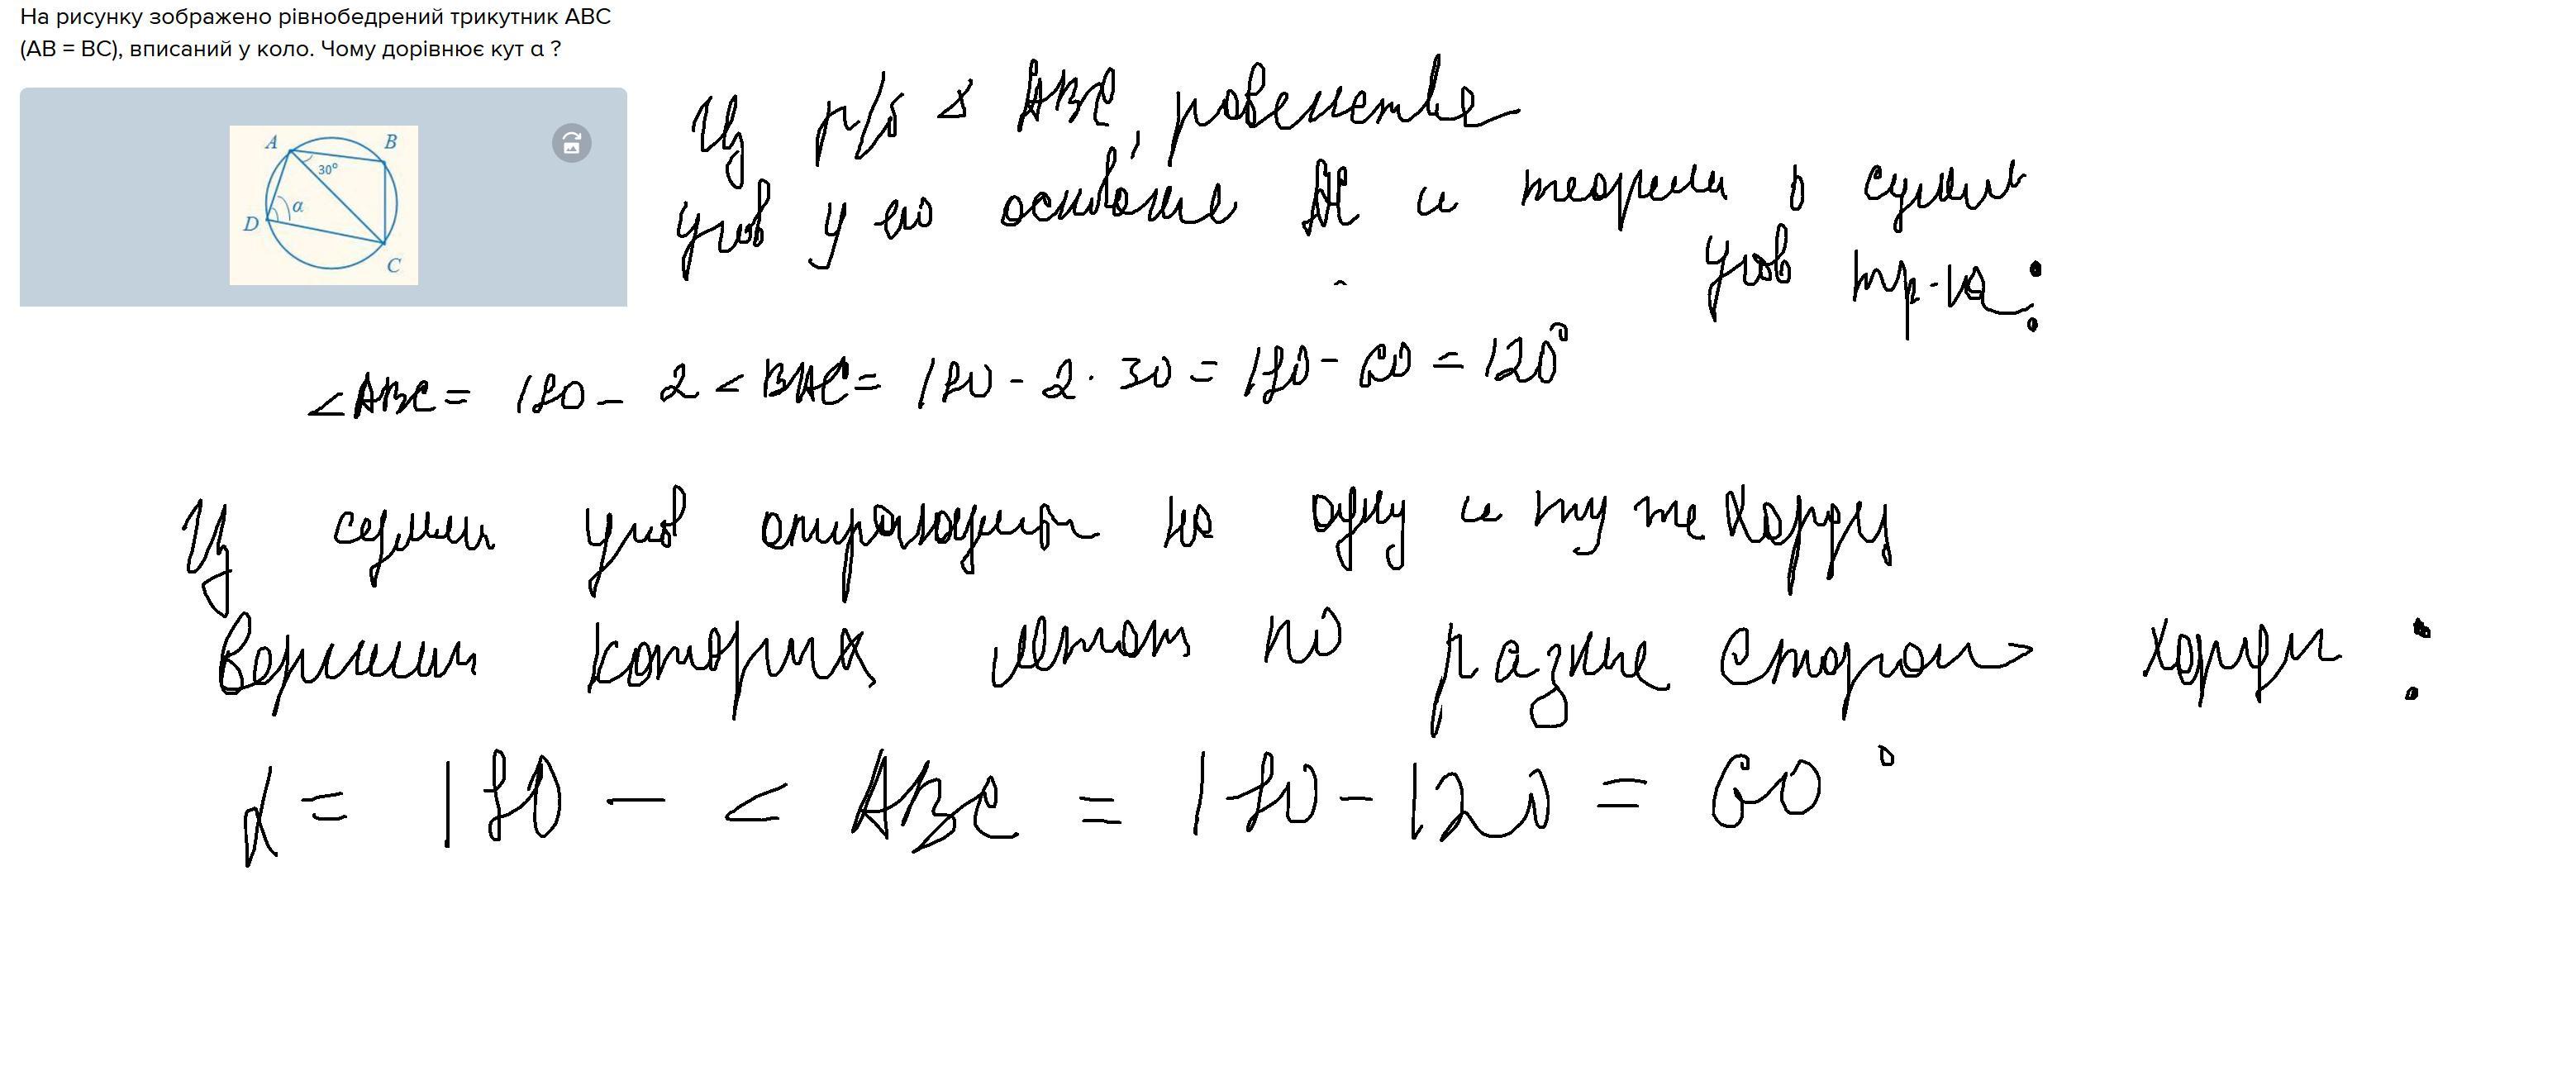 На рисунку зображено рівнобедрений трикутник ABC
(AB = BC), вписаний у коло. Чому дорівнює кут α ?
A
B
30°
α
D
C
Из р/б ∆ ABC, равенства
углов у его основания AC и теоремы о сумме
углов тр-ка:
<ABC = 180 - 2 <BAC = 180 - 2 · 30 = 180 - 60 = 120°
Из суммы углов опирающихся на одну и ту же хорду
вершины которых лежат по разные стороны хорды :
α = 180 - < ABC = 180 - 120 = 60°